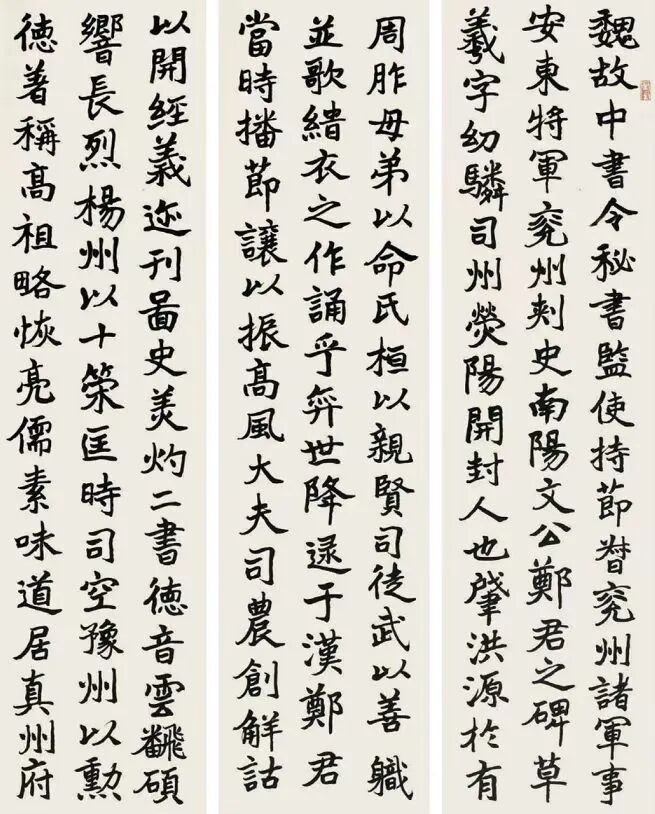 魏故中書令秘書監使持節督兗州諸軍事
安東將軍兗州刺史南陽文公鄭君之碑草
羲字幼驎司州熒陽開封人也肇洪源於有
周胙母弟以命氏桓以親賢司徒武以善職
並歌緇衣之作誦乎弈世降逮于漢鄭君
當時播節讓以振高風大夫司農創解詁
以開經義迹刊圖史美灼二書德音雲飜碩
響長烈楊州以十策匡時司空豫州以勳
德著稱高祖略恢亮儒素味道居真州府